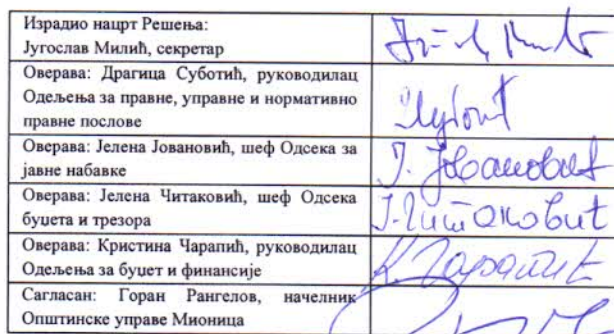 Израдио нацрт Решења:
Југослав Милић, секретар
Оверава: Драгица Суботић, руководилац
Одељења за правне, управне и нормативно
правне послове
Оверава: Јелена Јовановић, шеф Одсека за
јавне набавке
Ј. Јовановић
Оверава: Јелена Читаковић, шеф Одсека
буџета и трезора
Ј. Читаковић
Оверава: Кристина Чарапић, руководилац
Одељења за буџет и финансије
К. Чарапић
Сагласан: Горан Рангелов, начелник
Општинске управе Мионица